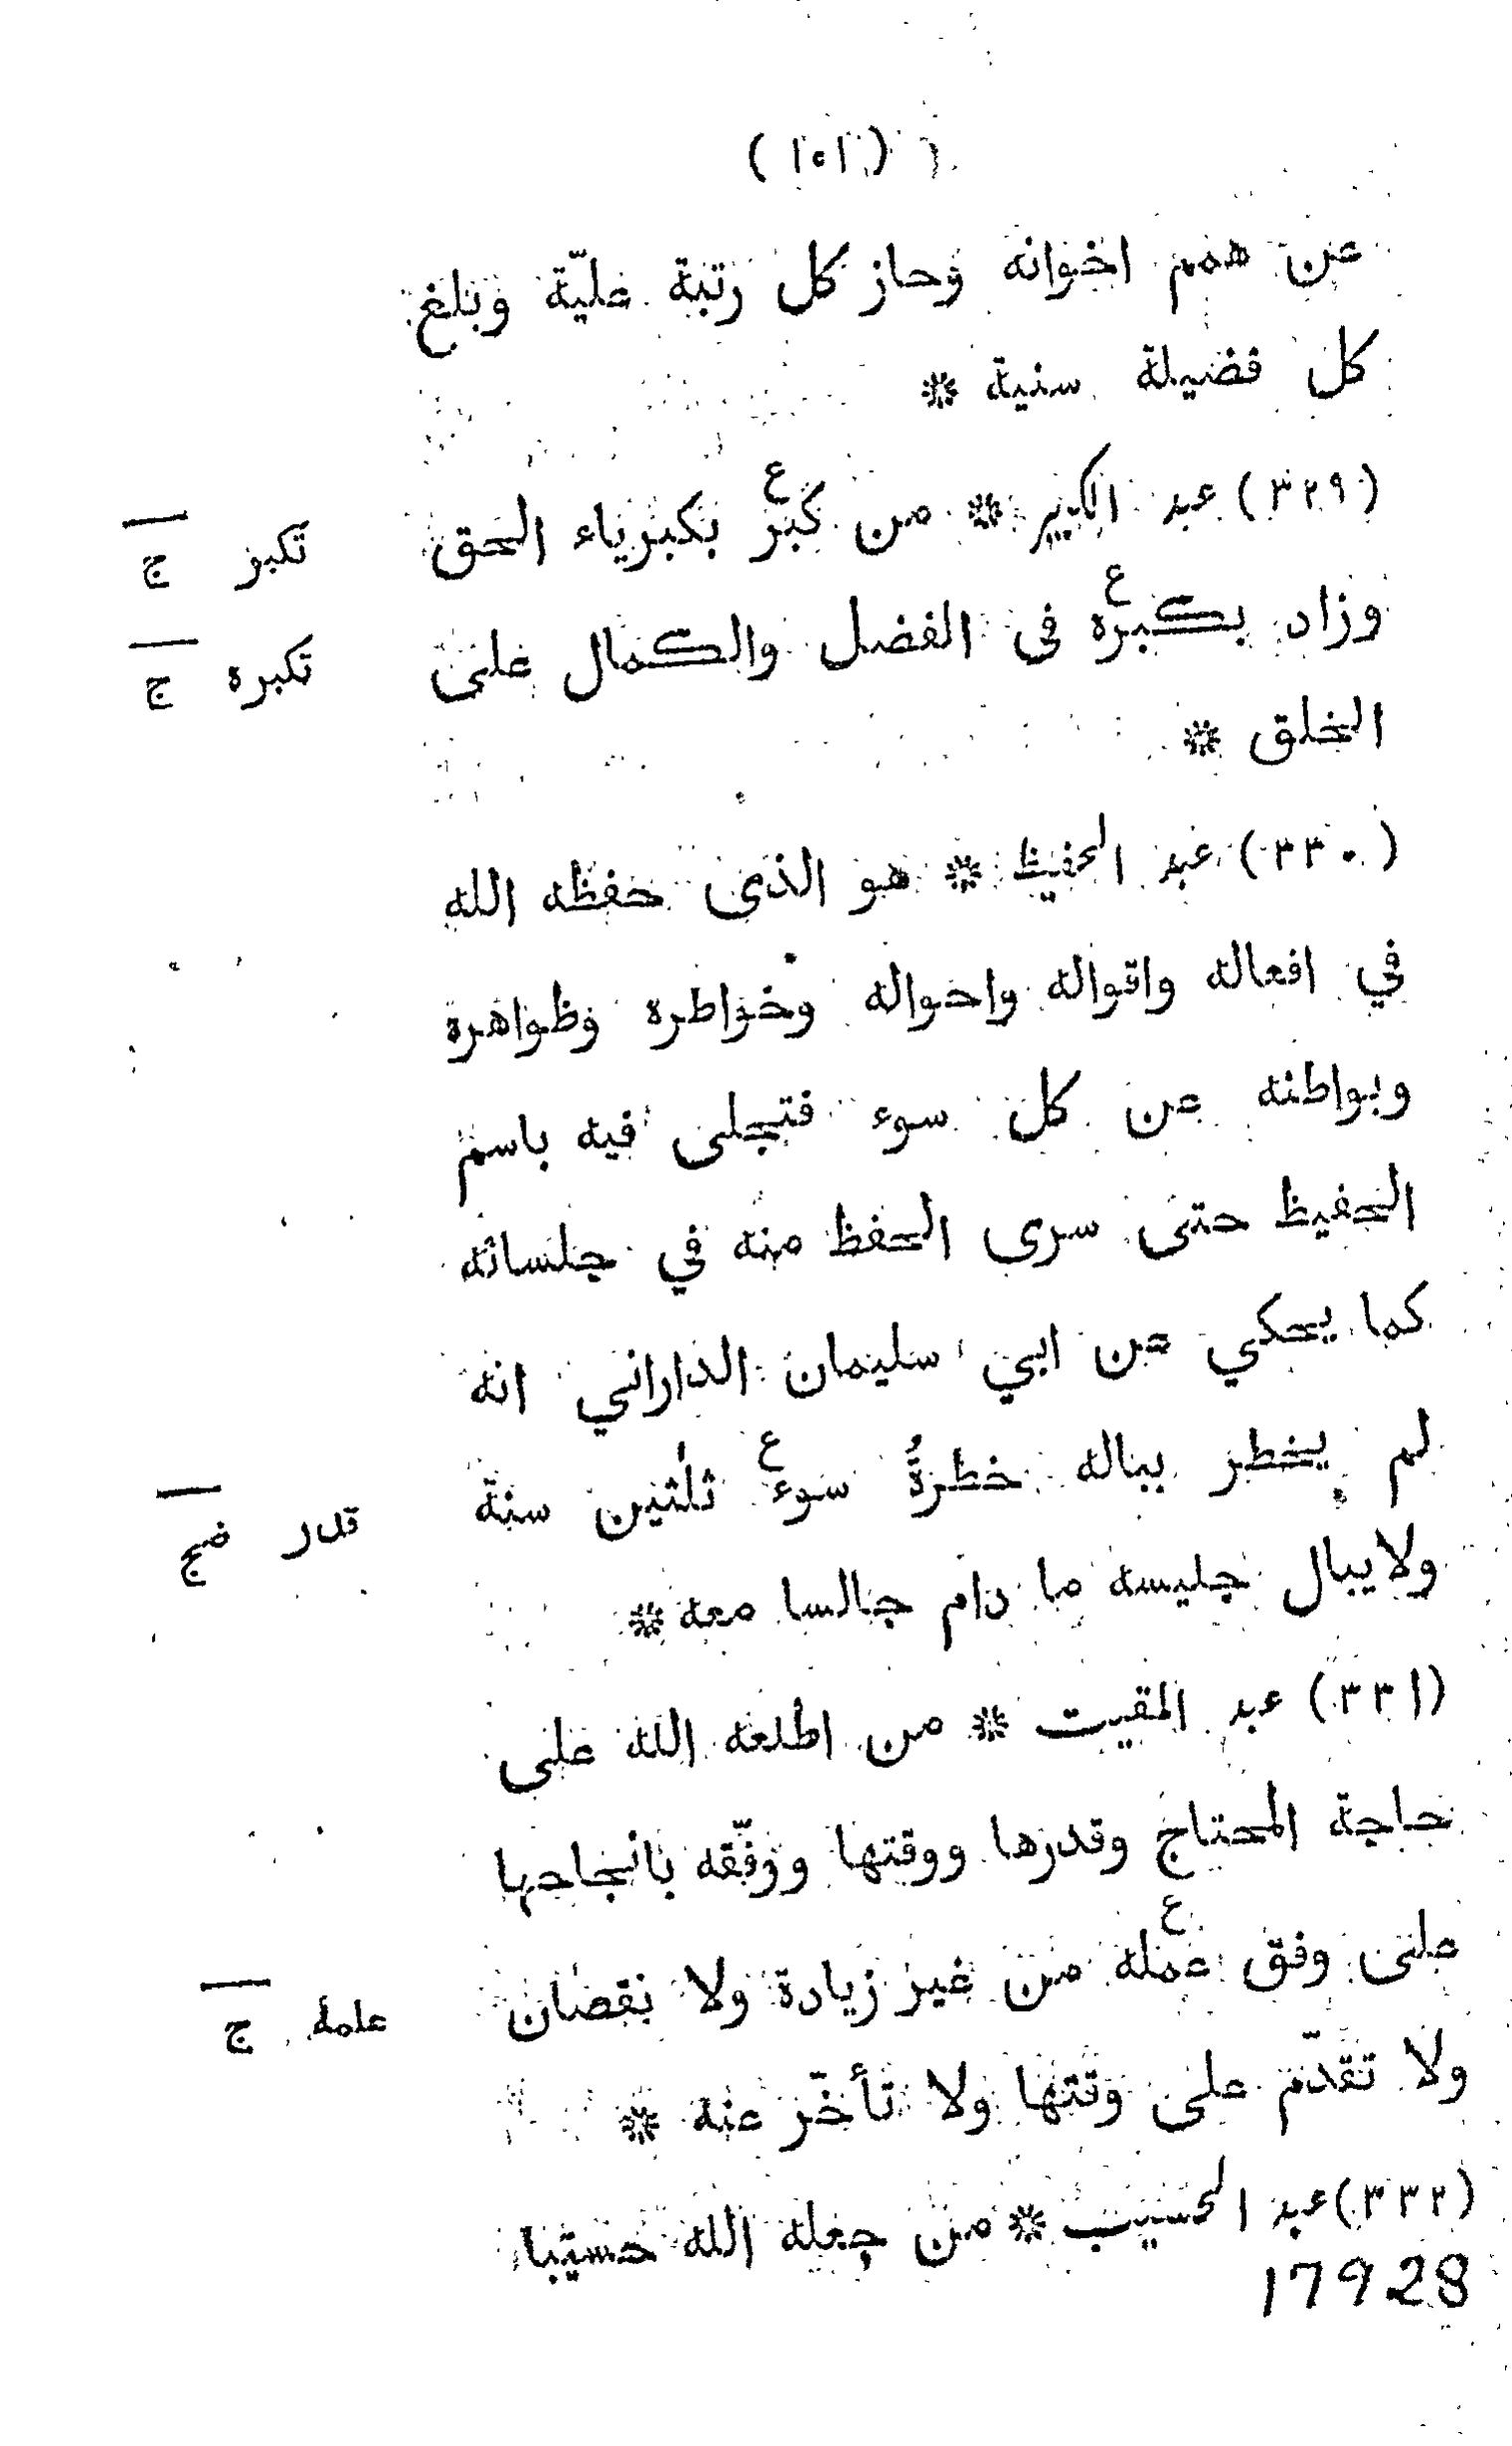 (١٥١)
عن همم اخوانه وحاز كل رتبة عليّة وبلغ
كل فضيلة سنية *
(٣٢٩) عبد الكبير * من كبر ع بكبرياء الحق تكبر ج
وزاد بكبره ع فى الفضل والكمال على تكبره ج
الخلق *
(٣٣٠) عبد الحفيظ * هو الذى حفظه الله
في افعاله واقواله واحواله وخواطره وظواهره
وبواطنه عن كل سوء فتجلى فيه باسم
الحفيظ حتى سرى الحفظ منه في جلسائه
كما يحكي عن ابي سليمان الداراني انه
لم يخطر بباله خطرةُ سوء ع ثلٰثين سنة قدر ضج
ولا يبال جليسه ما دام جالسا معه *
(٣٣١) عبد المقيت * من اطلعه الله على
حاجة المحتاج وقدرها ووقتها ووفّقه بانجاحها
على وفق عمله ع من غير زيادة ولا نقصان علمه ج
ولا تقدّم على وقتها ولا تأخّر عنه *
(٣٣٢) عبد الحسيب * من جعله الله حسيبا
17928